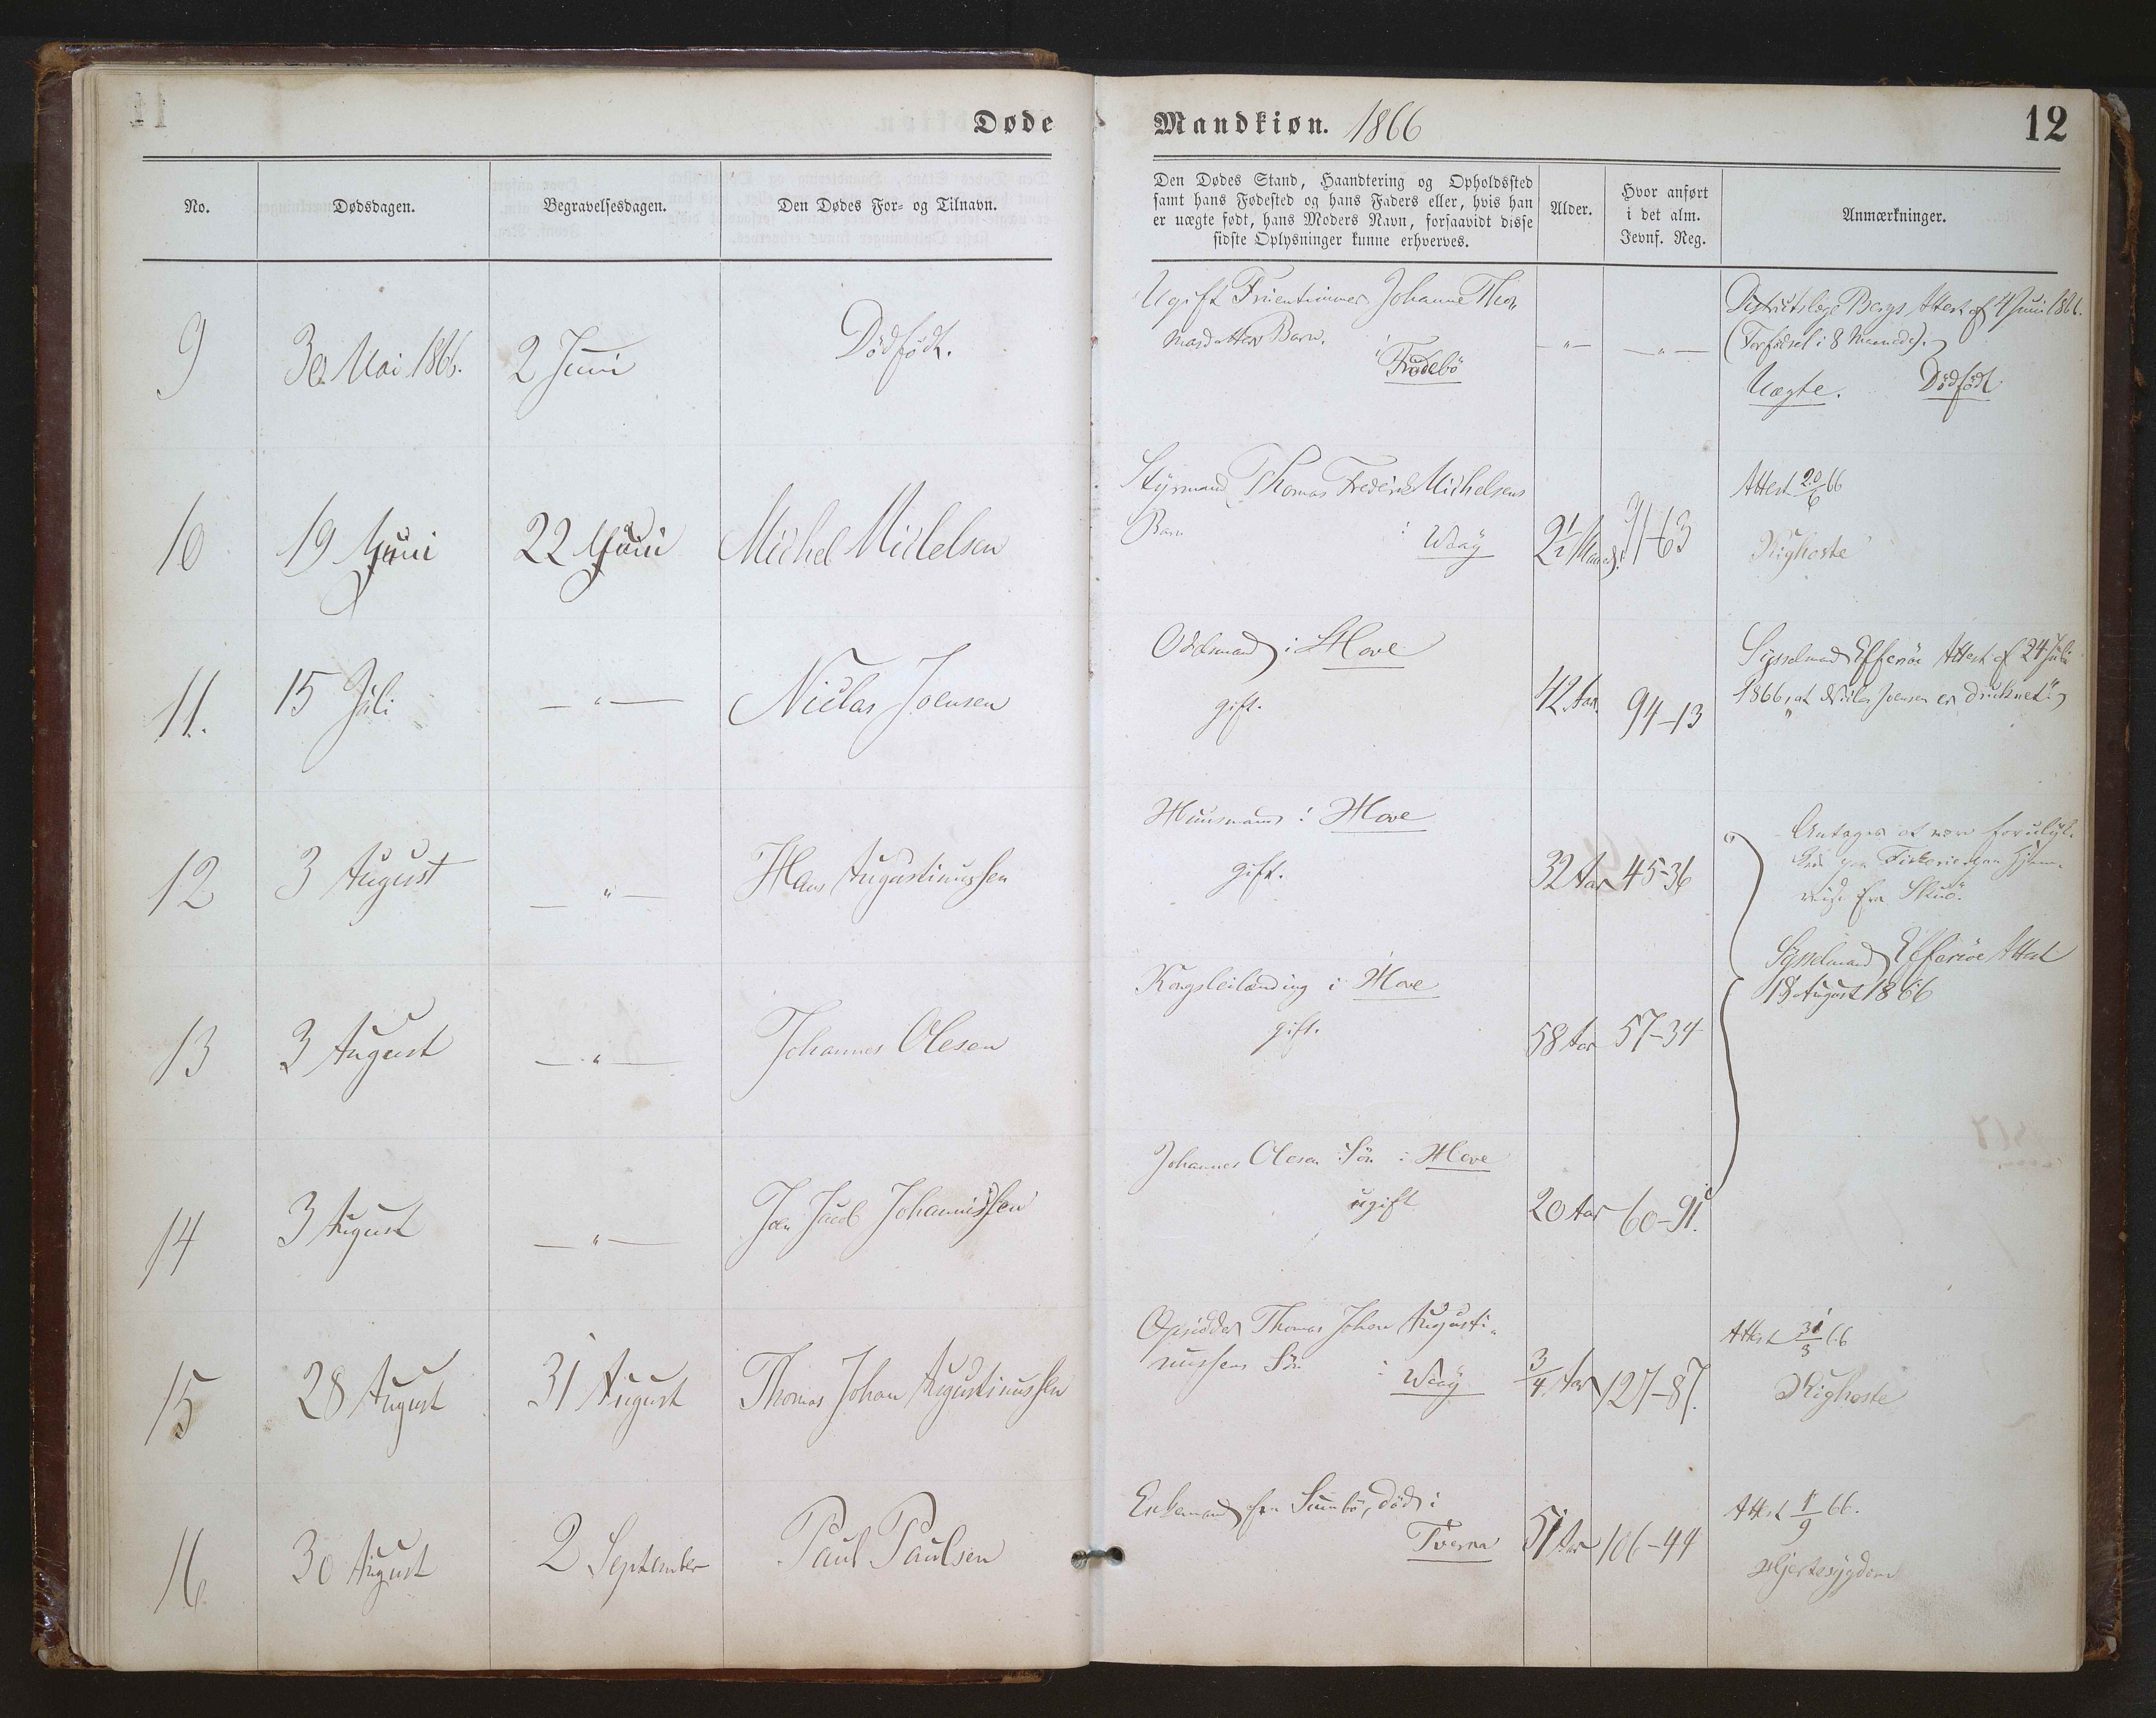 Døde Mandkiøn. 1866
12
No. Dødsdagen. Begravelsesdagen. Den Dødes For- og Tilnavn.
Den Dødes Stand, Haandtering og Opholdssted
samt hans Fødested og hans Faders eller, hvis han
er uægte født, hans Moders Navn, forsaavidt disse
sidste Oplysninger kunne erhverves.
Alder.
Hvor anført
i det alm.
Jevnf. Reg.
Anmærkninger.
9 30 Mai 1866. 2 Juni Dødfødt.
Ugift Fruentimmer Johanne Tho-
masdatters Barn. i
Frodebö
— " — — " —
Districtslæge Bergs Attest af 4 Juni 1866.
(Forfødsel i 8 Maaned).
Uægte. Dødfødt
10 19 Juni 22 Juni Michel Michelsen
Styrmand Thomas Frederik Michelsens
Barn i Waay
2½ Maaned 91-63
Attest 20/6 66
Kighoste
11. 15 Juli — " — Niclas Joensen
Odelsmand i Hove
gift.
42 Aar. 94-13
Sysselmand Effersöe Attest af 24 Juli
1866, at Niclas Joensen er druknet.
12 3 August — " — Hans Augustinussen
Huusmand i Hove
gift.
32 Aar 45-36
Antages at være forulyk-
ket paa Fiskerie paa Hjem-
reise fra Skuö.
13 3 August — " — Johannes Olesen
Kongsleilænding i Hove
gift.
58 Aar 57-34
Sysselmand Effersöe Attest
18 August 1866
14 3 August — " — Jacob Johannissen
Johannes Olesen Sön i Hove
ugift
20 Aar 60-91.
15 28 August 31 August Thomas Johan Augustinussen
Opsidder Thomas Johan Augusti-
nussens Sön i Waay
3/4 Aar 127-87.
Attest 66
Kighoste
16 30 August 2 September Paul Paulsen
Enkemand fra Sumbö, död i
Tveraa
51 Aar 106-44
Attest 1/9 66.
Hjertesygdom